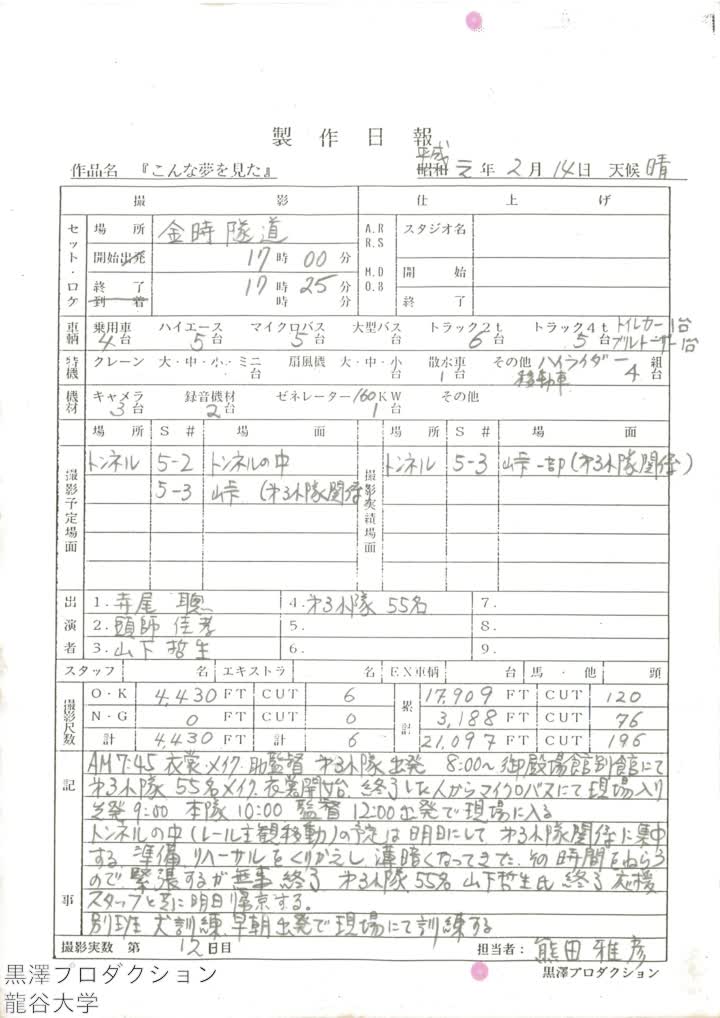 製作日報
作品名 『こんな夢を見た』 昭和 平成 元年 2月 14日 天候 晴
撮影 仕上げ
セット・ロケ 場所 金時隧道 A.R R.S スタジオ名
開始出発 17時00分 M.D D.B 開始
終了 17時25分 終了
到着 時 分
車輌 乗用車 4台 ハイエース 5台 マイクロバス 5台 大型バス 台 トラック2t 6台 トラック4t 5台 トイレカー1台
特機 クレーン 大・中・小・ミニ 台 扇風機 大・中・小 台 散水車 1台 その他 ハイライダー 移動車 4 組台
機材 キャメラ 3台 録音機材 2台 ゼネレーター160KW 1台 その他
撮影予定場面 場所 S# 場面 撮影実績場面 場所 S# 場面
トンネル 5-2 トンネルの中 トンネル 5-3 峠一部(オ3小隊関係)
5-3 峠 (オ3小隊関係
出演者 1.寺尾 聰 4.オ3小隊 55名 7.
2.頭師 佳孝 5. 8.
3.山下 哲生 6. 9.
スタッフ 名 エキストラ 名 EX車輌 台 馬・他 頭
撮影尺数 O・K 4,430 FT CUT 6 累計 17,909 FT CUT 120
N・G 0 FT CUT 0 3,188 FT CUT 76
計 4,430 FT 計 6 21,097 FT CUT 196
記事 AM7:45 衣裳・メイク・助監督 オ3小隊 出発 8:00〜御殿場館別館にて
オ3小隊 55名メイク、衣裳開始 終了した人からマイクロバスにて現場入り
美発 9:00 本隊 10:00 監督 12:00出発で現場に入る
トンネルの中(レール主観移動)の予定は明日にして オ3小隊関係に集中
する 準備 リハーサルをくりかえし 薄暗くなってきた、その時間をねらう
ので緊張するが無事終了 オ3小隊55名 山下哲生氏 終了 応援
スタッフと共に明日帰京する。
別班 犬訓練 早朝出発で現場にて訓練する
撮影実数 第 12日目 担当者: 熊田 雅彦
黒澤プロダクション
黒澤プロダクション
龍谷大学